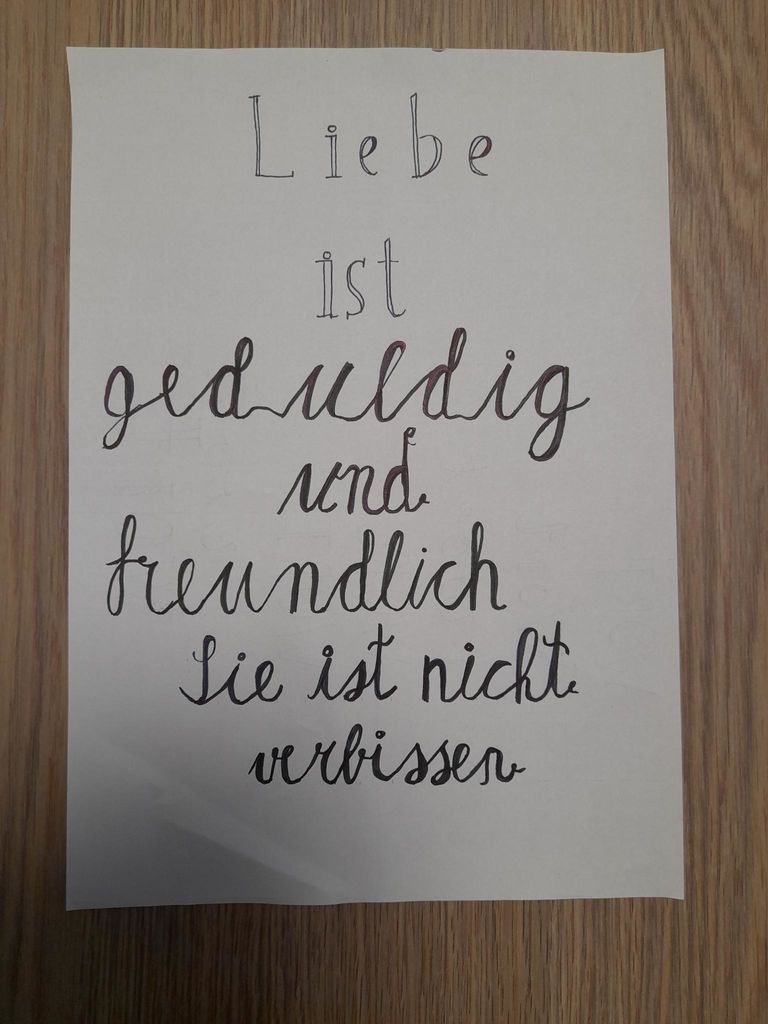 Liebe
ist
geduldig
und
freundlich
Sie ist nicht
verbissen